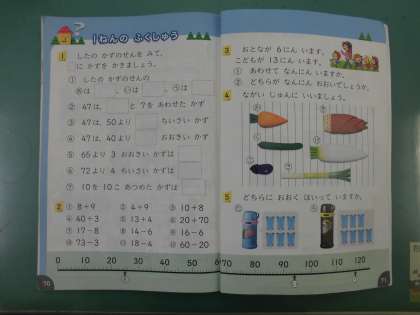 1ねんの ふくしゅう
1 したの かずのせんを みて、
に かずを かきましょう。
① したの かずのせんの
あは 、いは 、うは
② 47は、 と 7を あわせた かず
③ 47は、50より ちいさい かず
④ 47は、40より おおきい かず
⑤ 65より 3 おおきい かずは
⑥ 72より 4 ちいさい かずは
⑦ 10を 10こ あつめた かずは
2 ① 8+9 ② 4+9 ③ 10+8
④ 40+3 ⑤ 13+4 ⑥ 20+70
⑦ 17-8 ⑧ 14-6 ⑨ 16-6
⑩ 73-3 ⑪ 18-4 ⑫ 60-20
0 10 20 30 40 50 60
70
3 おとなが 6にん います。
こどもが 13にん います。
① あわせて なんにん いますか。
② どちらが なんにん おおいでしょうか。
4 ながい じゅんに いいましょう。
5 どちらに おおく はいって いますか。
70 80 90 100 110 120
71